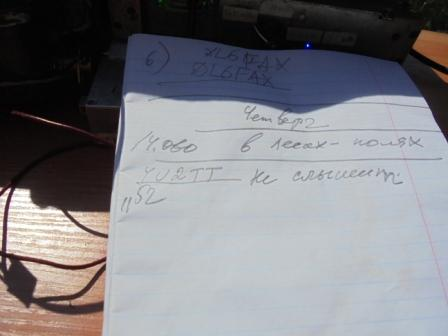 6) XL6FAX
ØL6FAX
Четверг
14.000 в лесах-полях
4U2TT не слышит
"52